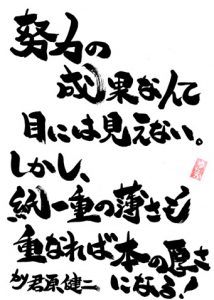 努力の
成果なんて
目には見えない。
しかし、
紙一重の薄さも
重なれば本の厚さ
になる!
by君原健二